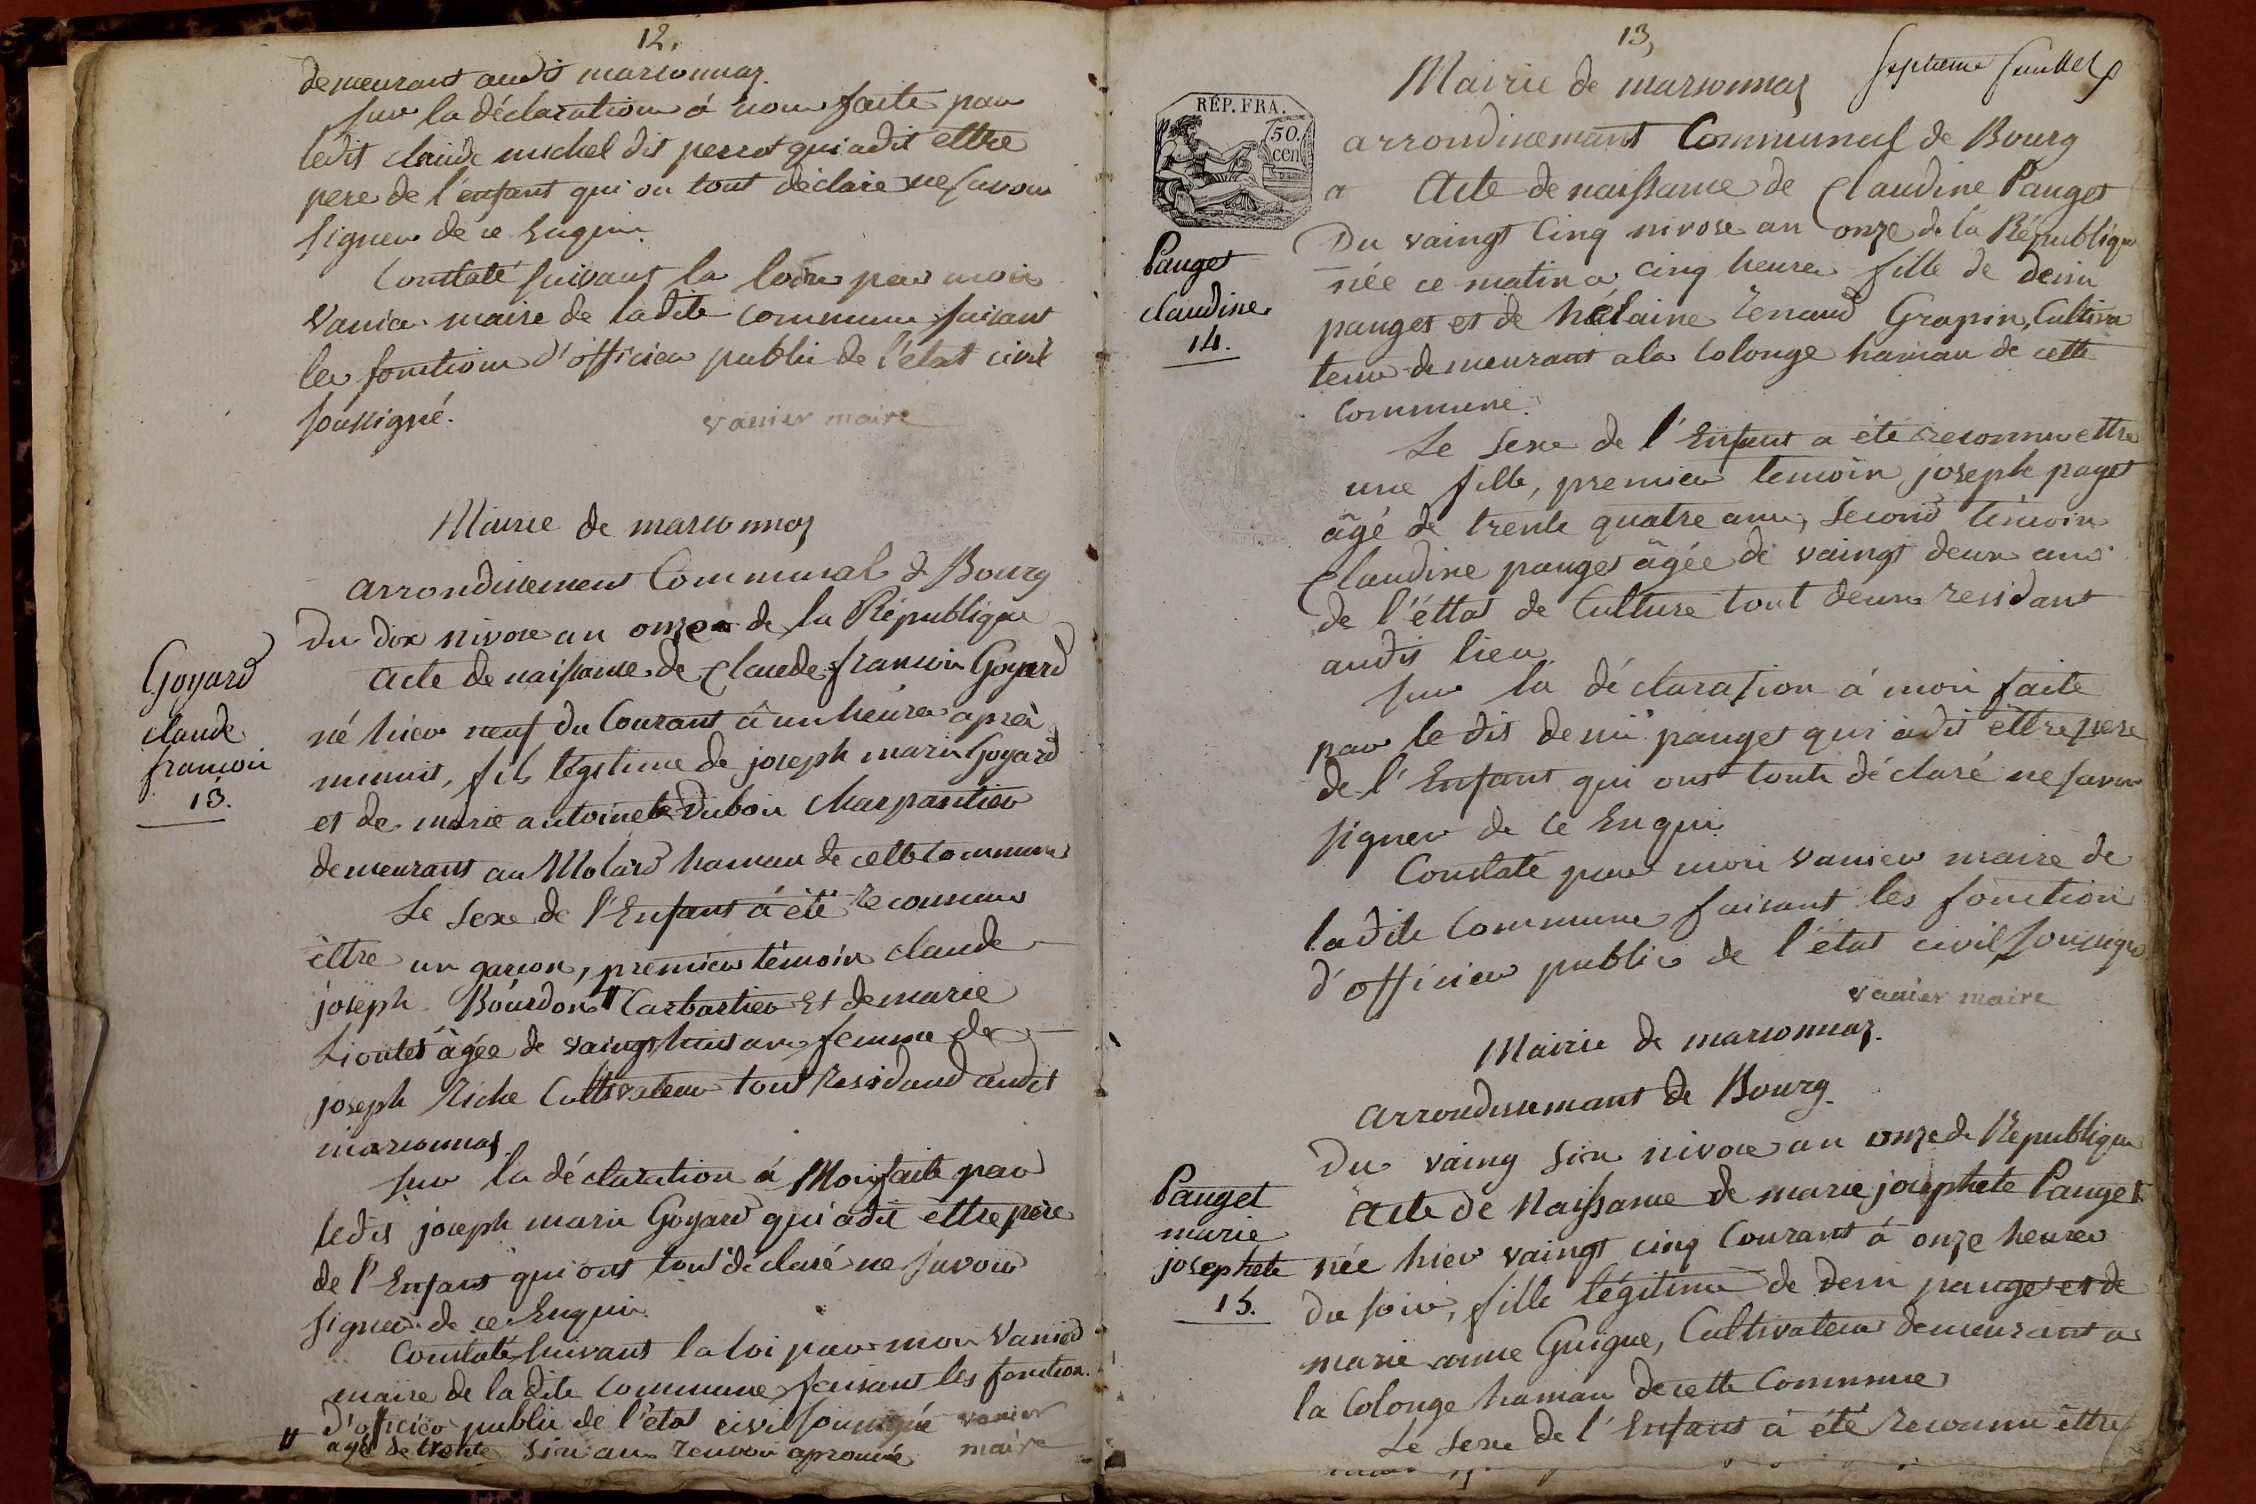 12.
demeurant audit marsonnas.
sur la déclaration à nous faite par
ledit claude michel dit perrot qui a dit ettre
pere de l'enfant qui on tout déclaré ne savoir
signer de ce Enquis.
Constaté suivant la loi par moi
Vanier maire de ladite commune faisant
les fonctions d'officier public de l'état civil
soussigné.
vanier maire
Mairie de marsonnas
arrondissement Communal de Bourg
Du dix nivose an onze de la République
Goyard
claude
francois
13.
acte de naissance de Claude francois Goyard
né hier neuf du Courant à un heure après
minuit, fils légitime de joseph marie Goyard
et de marie antoinete Dubois charpantier
demeurant au Molard hamau de cette commune
Le sexe de l'Enfant à été reconnus
èttre un garson, premier témoin claude
joseph Bourdon # Carbartier Et de marie
âgée de vaingt huis ans femme de
joseph Riche Cultivateur tous residand audit
marsonnas.
sur la déclaration à Moi faite par
ledit joseph marie Goyard qui a dit èttre père
de l'Enfant qui ont tous déclaré ne savoir
signer de ce Enquis
Constaté suivant la loi par moi Vanier
maire de ladite commune faisant les fonction
d'officier public de l'état civil soussigné vanier
maire
# agé de trente six ans renvoi aprouvé
13,
septieme feuillet
RÉP. FRA.
50.
cen
Mairie de marsonnas
arrondissemant Communal de Bourg
Acte de naissance de Claudine Pauget
Pauget
claudine
14.
Du vaingt Cinq nivose an onze de la République
née ce matin a cinq heures fille de denis
pauget et de hélaine Renaud Grapin, Cultiva
teur demeurant a la Colonge hamau de cette
commune.
Le Sexe de l'Enfant a été reconnu ettre
une fille, premier temoin joseph paget
âgé de trente quatre ans, Second témoin
Claudine pauget âgée de vaingt deux ans
de l'éttat de Culture tout deux residant
audit lieu
sur la déclaration à moi faite
par le dit denis pauget qui a dit èttre pere
de l'Enfant qui ont touts déclaré ne savoir
signer de ce Enquis
Constaté par moi vanier maire de
ladite Commune faisant les fonction
d'officier public de l'état civil soussigné
vanier maire
Mairie de marsonnas.
arrondissemant de Bourg.
Du vaing six nivose an onze de République
Pauget
marie
josephete
15.
Acte de Naissance de marie josephete Pauget
née hier vaingt cinq Courant à onze heures
du soir, fille légitime de denis pauget et de
marie anne Guigue, Cultivateur demeurant a
la Colonge hamau de cette Commune
Le Sexe de l'Enfant à été reconnu èttre